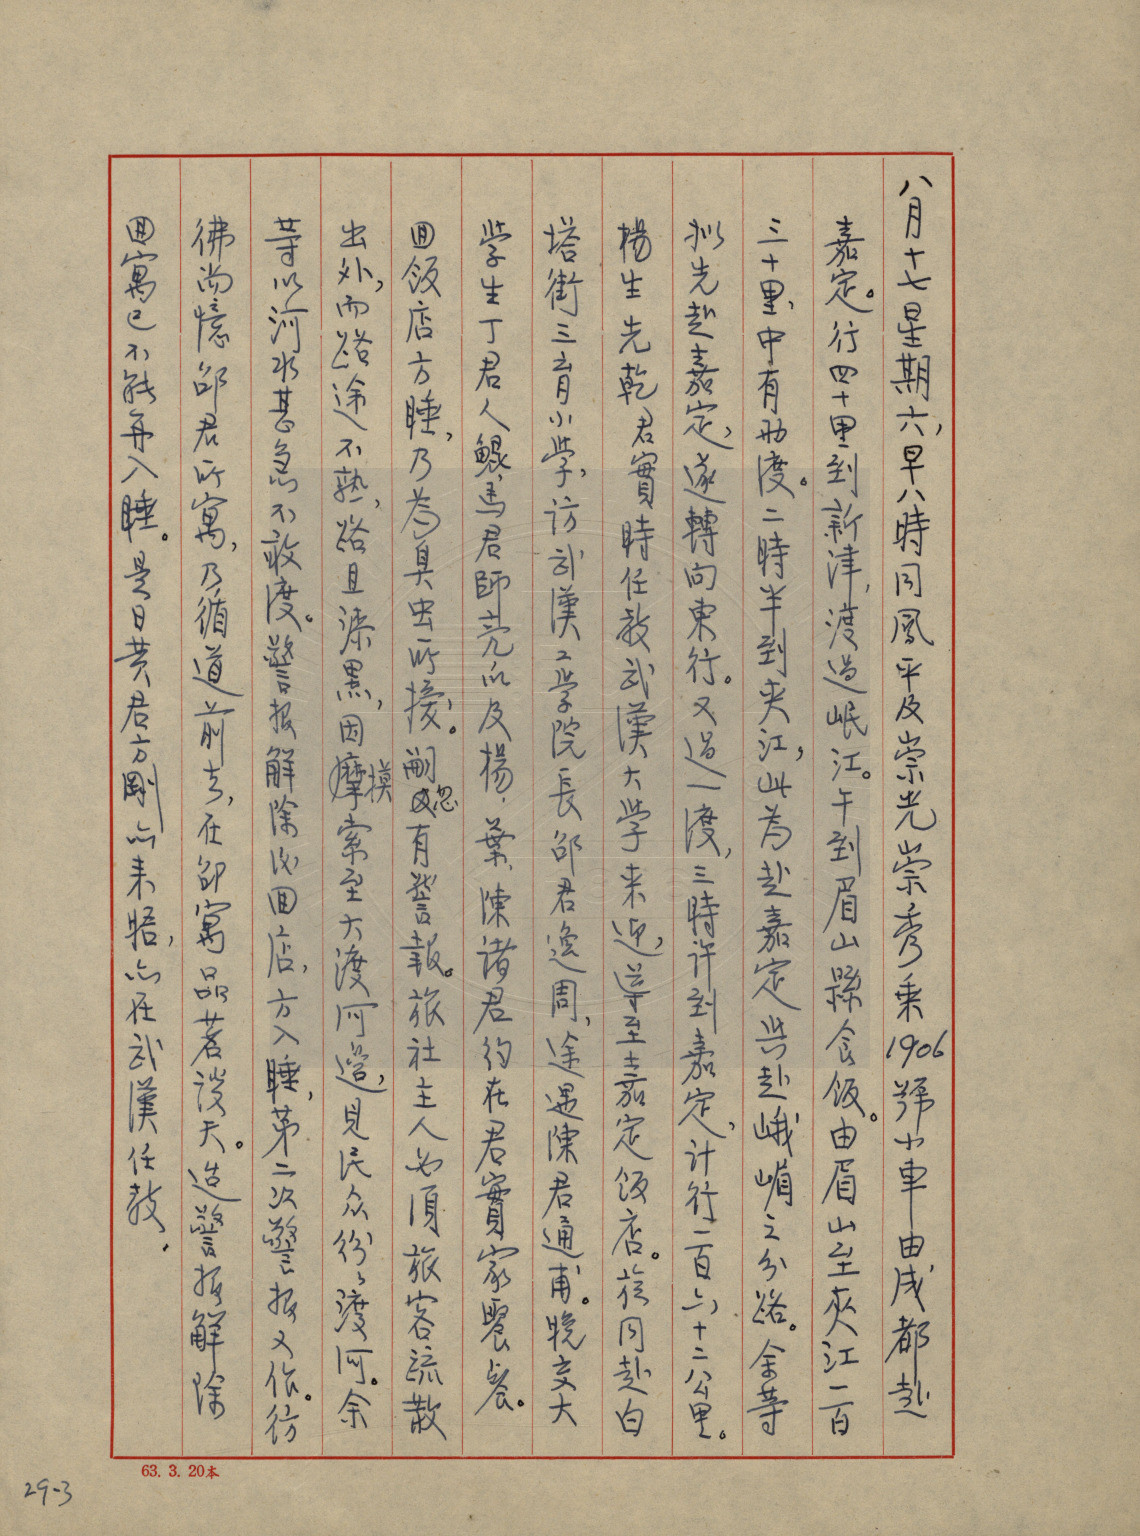 八月十七星期六，早八時同鳳平及崇光崇秀乘1906號小車由成都赴
嘉定。行四十里到新津，渡過岷江。午到眉山縣食飯。由眉山至夾江一百
三十里，中有兩渡。二時半到夾江，此為赴嘉定與赴峨嵋之分路。余等
擬先赴嘉定，遂轉向東行。又過一渡，三時許到嘉定，計行一百六十二公里。
楊生先乾君實時任教武漢大学来迎，導至嘉定飯店。旋同赴白
塔街三育小学，访武漢工学院長邵君逸周，途遇陳君通甫。晚交大
学生丁君人鯤，馬君師亮以及楊，葉，陳諸君約在君實家聚餐。
回飯店方睡，乃為臭虫所擾。嗣忽有警報。旅社主人必須旅客疏散
出外，而路途不熟，路且漆黑，因摩摸索至大渡河邊，見民众纷纷渡河。余
等以河水甚急不敢渡。警报解除后回店，方入睡，第二次警报又作。彷
彿尚憶邵君所寓，乃循道前去，在邵寓品茗談天。迨警报解除
回寓已不能再入睡。是日黄君方剛亦来晤，亦在武漢任教.
63. 3. 20本
29-3